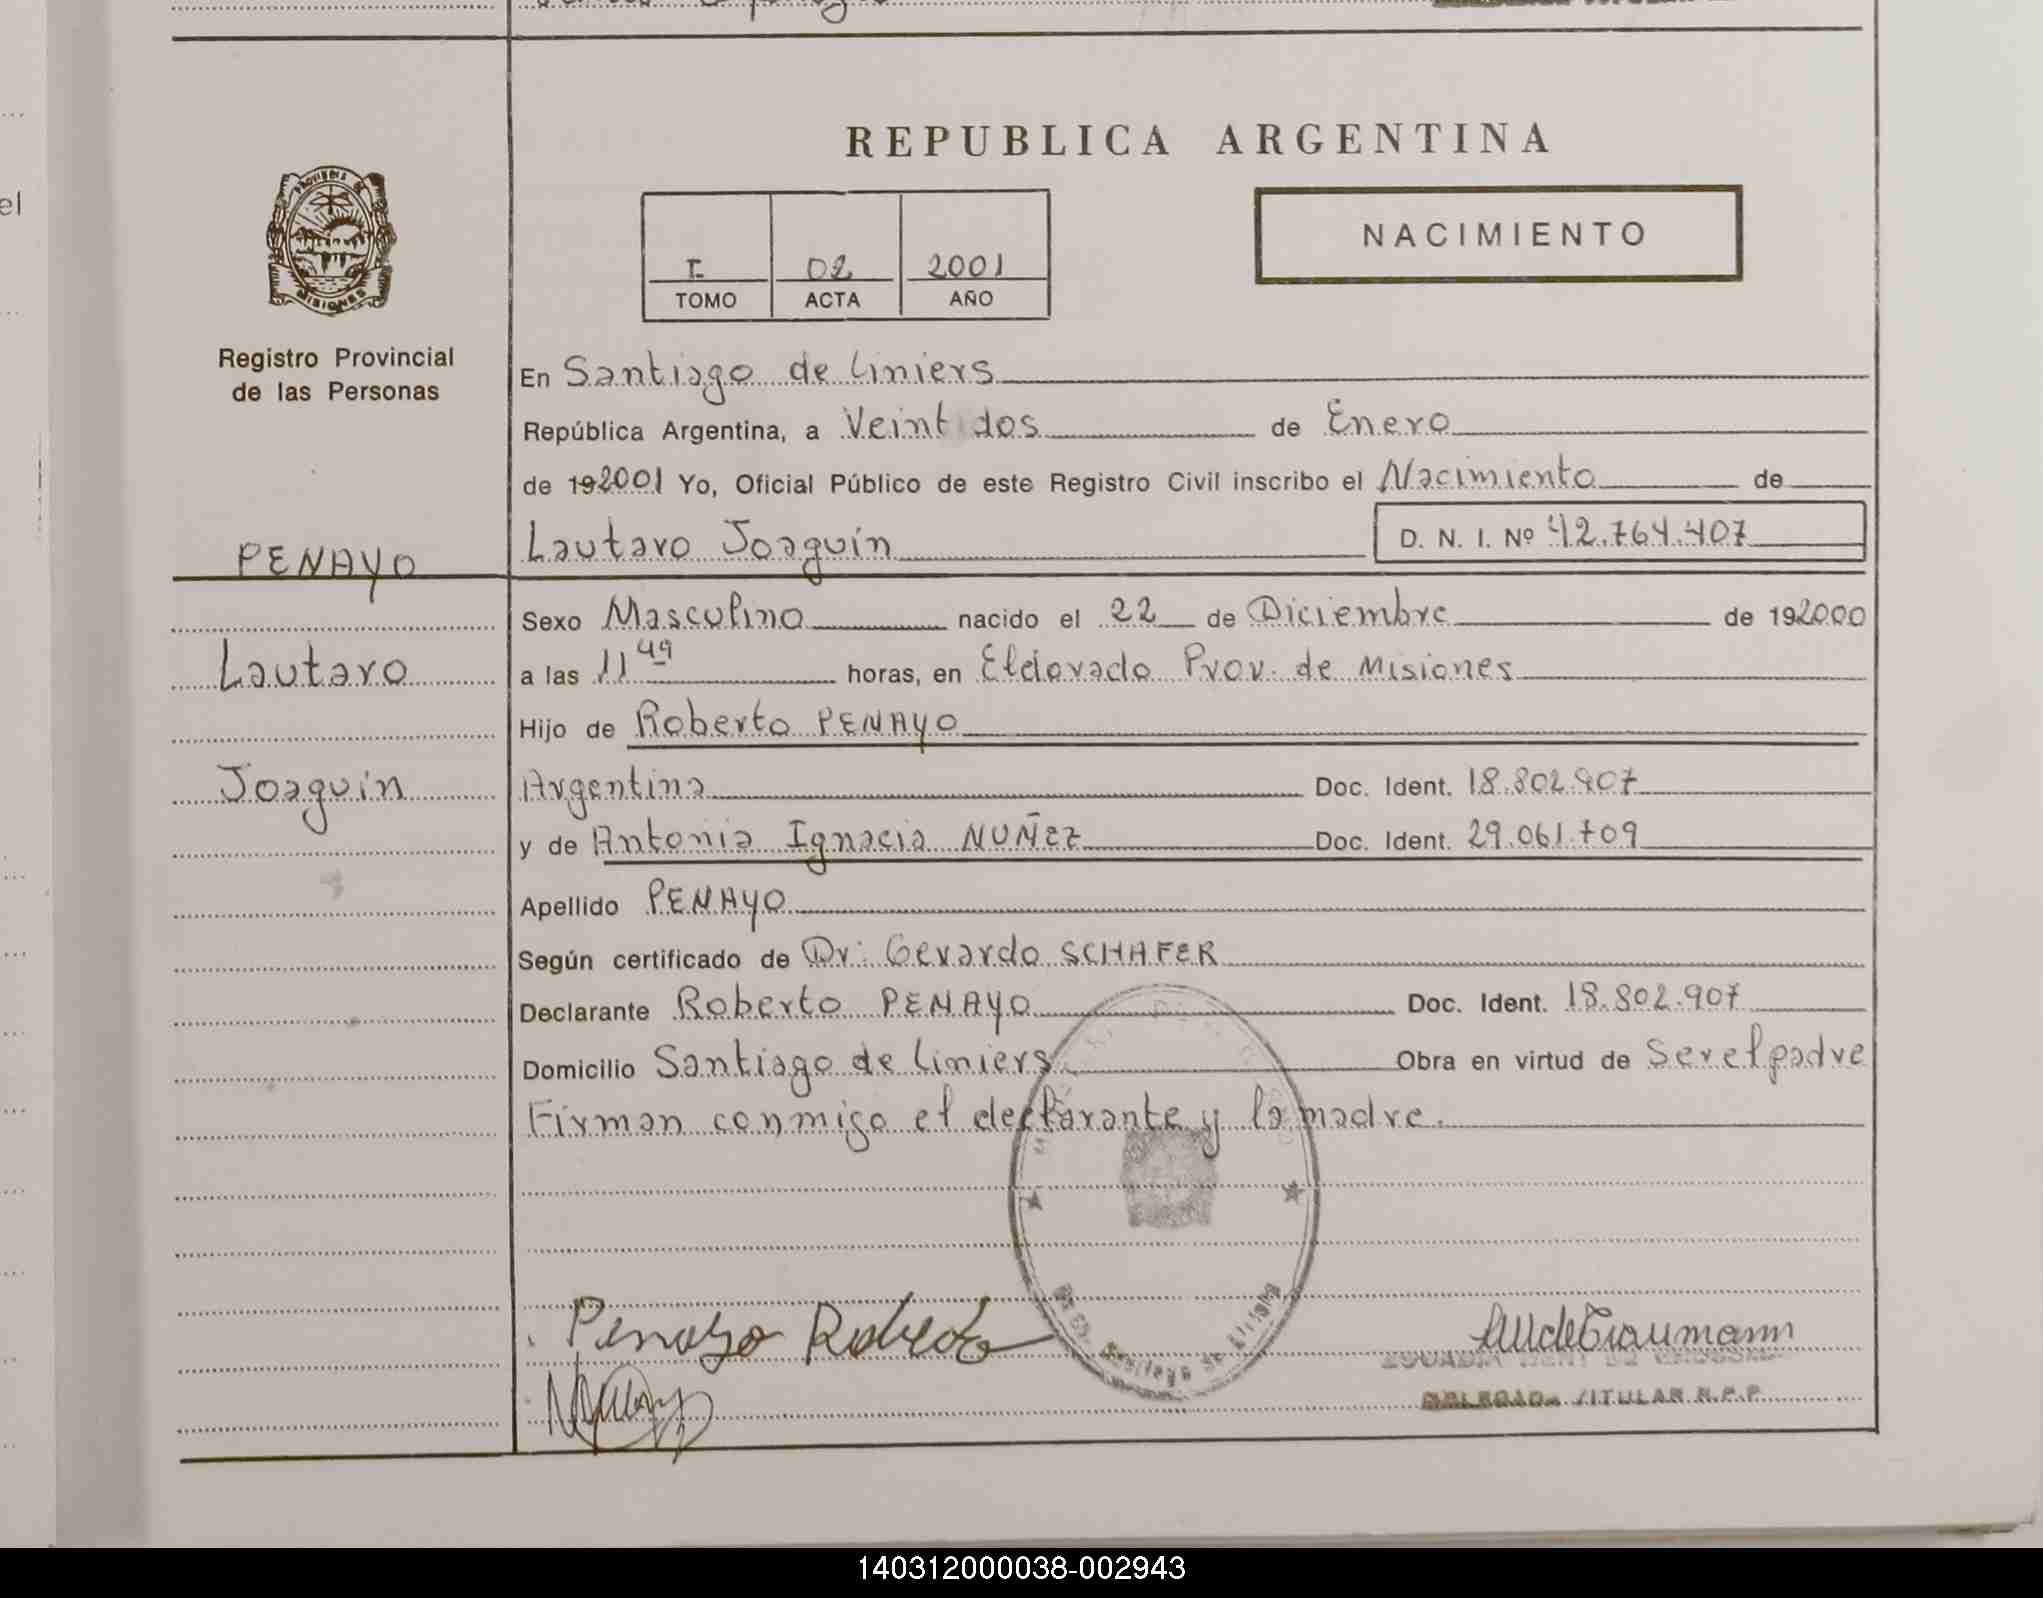 REPUBLICA ARGENTINA
PROVINCIA DE
MISIONES
Registro Provincial
de las Personas
I- 02 2001
TOMO ACTA AÑO
NACIMIENTO
el
En Santiago de Liniers
República Argentina, a Veintidos de Enero
de 192001 Yo, Oficial Público de este Registro Civil inscribo el Nacimiento de
PENAYO
Lautaro Joaquín D. N. I. Nº 42.764.407
Sexo Masculino nacido el 22 de Diciembre de 192000
Lautaro
a las 11 49 horas, en Eldorado Prov. de Misiones
Hijo de Roberto PENAYO
Joaquín
Argentina Doc. Ident. 18.802.907
y de Antonia Ignacia NUÑEZ Doc. Ident. 29.061.709
Apellido PENAYO
Según certificado de Dr: Gerardo SCHAFER
Declarante Roberto PENAYO Doc. Ident. 18.802.907
Domicilio Santiago de Liniers Obra en virtud de Ser el padre
Firman conmigo el declarante y la madre.
Penayo Roberto
Santiago de Liniers
TITULAR R.P.P.
140312000038-002943